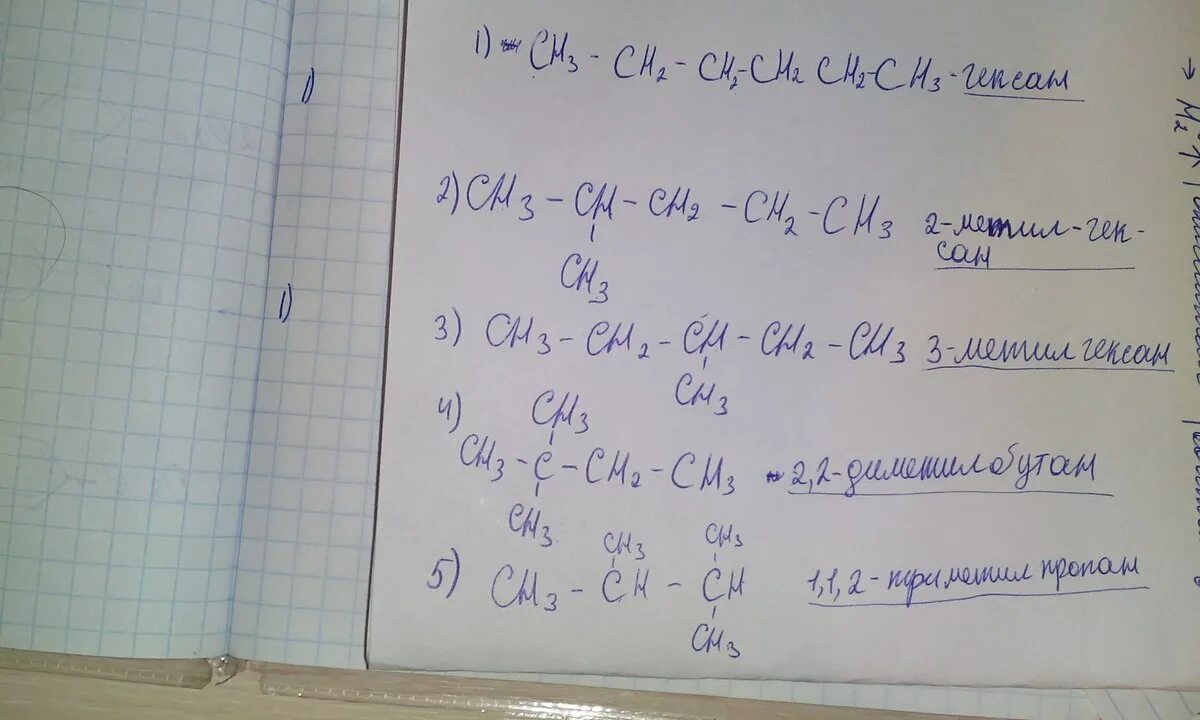 1) CH3 - CH2 - CH2-CH2 CH2-CH3 - гексан
2) CH3 - CH - CH2 - CH2 - CH3 2-метил-гек-
сан
CH3
3) CH3 - CH2 - CH - CH2 - CH3 3-метилгексан
CH3
4) CH3
CH3 - C - CH2 - CH3 - 2,2-диметилобутан
CH3
CH3 CH3
5) CH3 - CH - CH 1,1,2-триметилпропан
CH3
1)
1)
→ H2↑